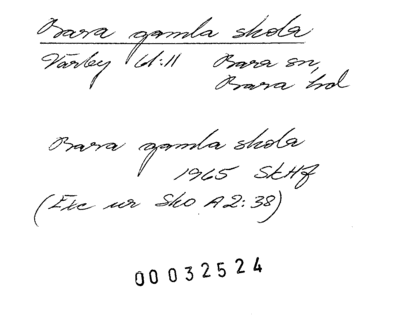 Bara gamla skola
Värby 61:11 Bara sn,
Bara hd
Bara gamla skola
1965 SkHf
(Exc ur Sko A2:38)
00032524